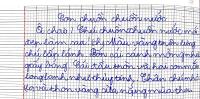 Con chuồn chuồn nước
Ôi chao! Chú chuồn chuồn nước mới
đẹp làm sao. Màu vàng trên lưng
chú lấp lánh. Bốn cái cánh mỏng như
giấy bóng. Cái đầu tròn và hai con mắt
long lanh như thủy tinh. Thân chú nhỏ
và thon vàng như màu vàng của